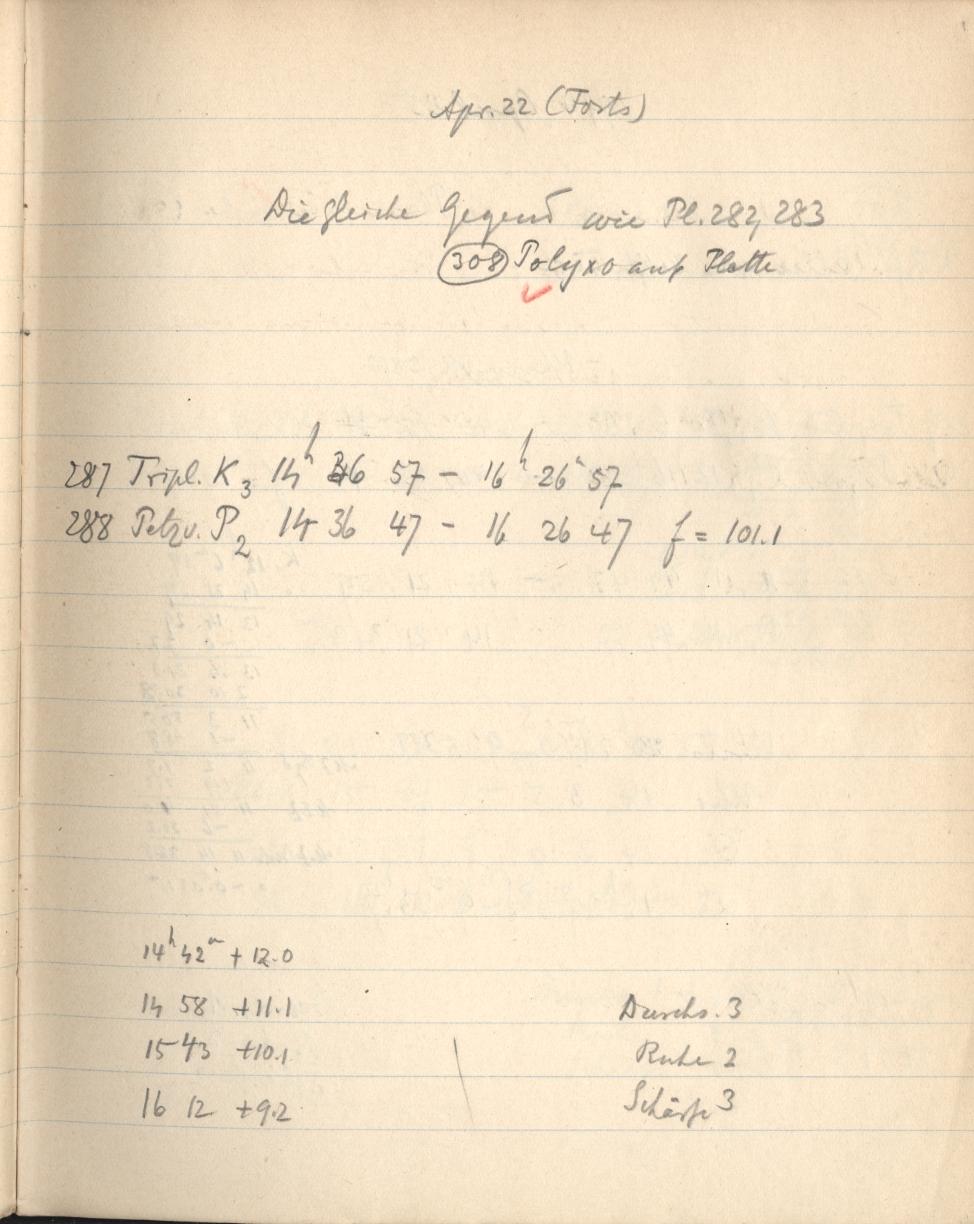 Apr. 22 (Forts)
Die gleiche Gegend wie Pl. 282, 283
(308) Polyxo auf Platte
287 Tripl. K3 14h 36 57 – 16h 26m 57
288 Petzv. P2 14 36 47 – 16 26 47 f = 101.1
14h 42m + 12.0
14 58 +11.1 Durchs. 3
15 43 +10.1 Ruhe 2
16 12 +9.2 Schärfe 3